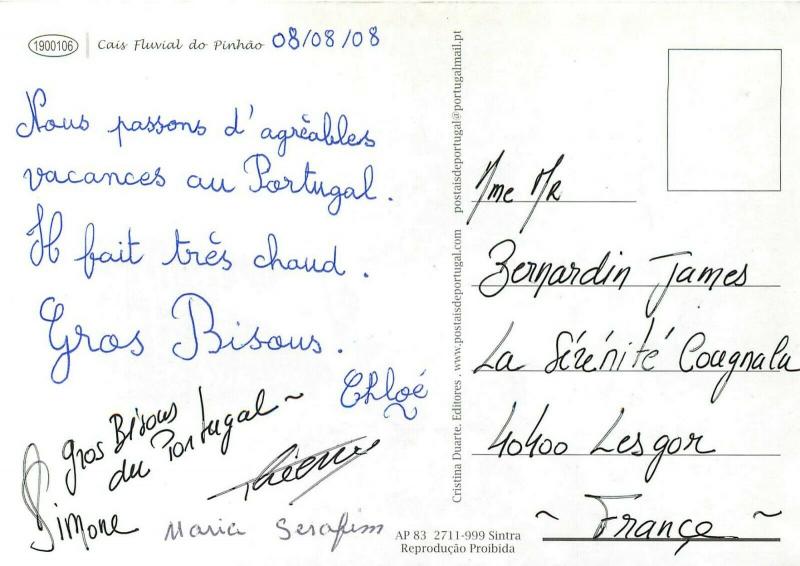 1900106 Cais Fluvial do Pinhão 08/08/08
Nous passons d'agréables
vacances au Portugal.
Il fait très chaud.
Gros Bisous.
Chloé
Gros Bisous
du Portugal ~
Simone
Maria Serafim
Cristina Duarte. Editores . www.postaisdeportugal.com postaisdeportugal@portugalmail.pt
AP 83 2711-999 Sintra
Reprodução Proibida
Mme MR
Bernardin James
La Sérénité
40400 Lesgor
~ France ~